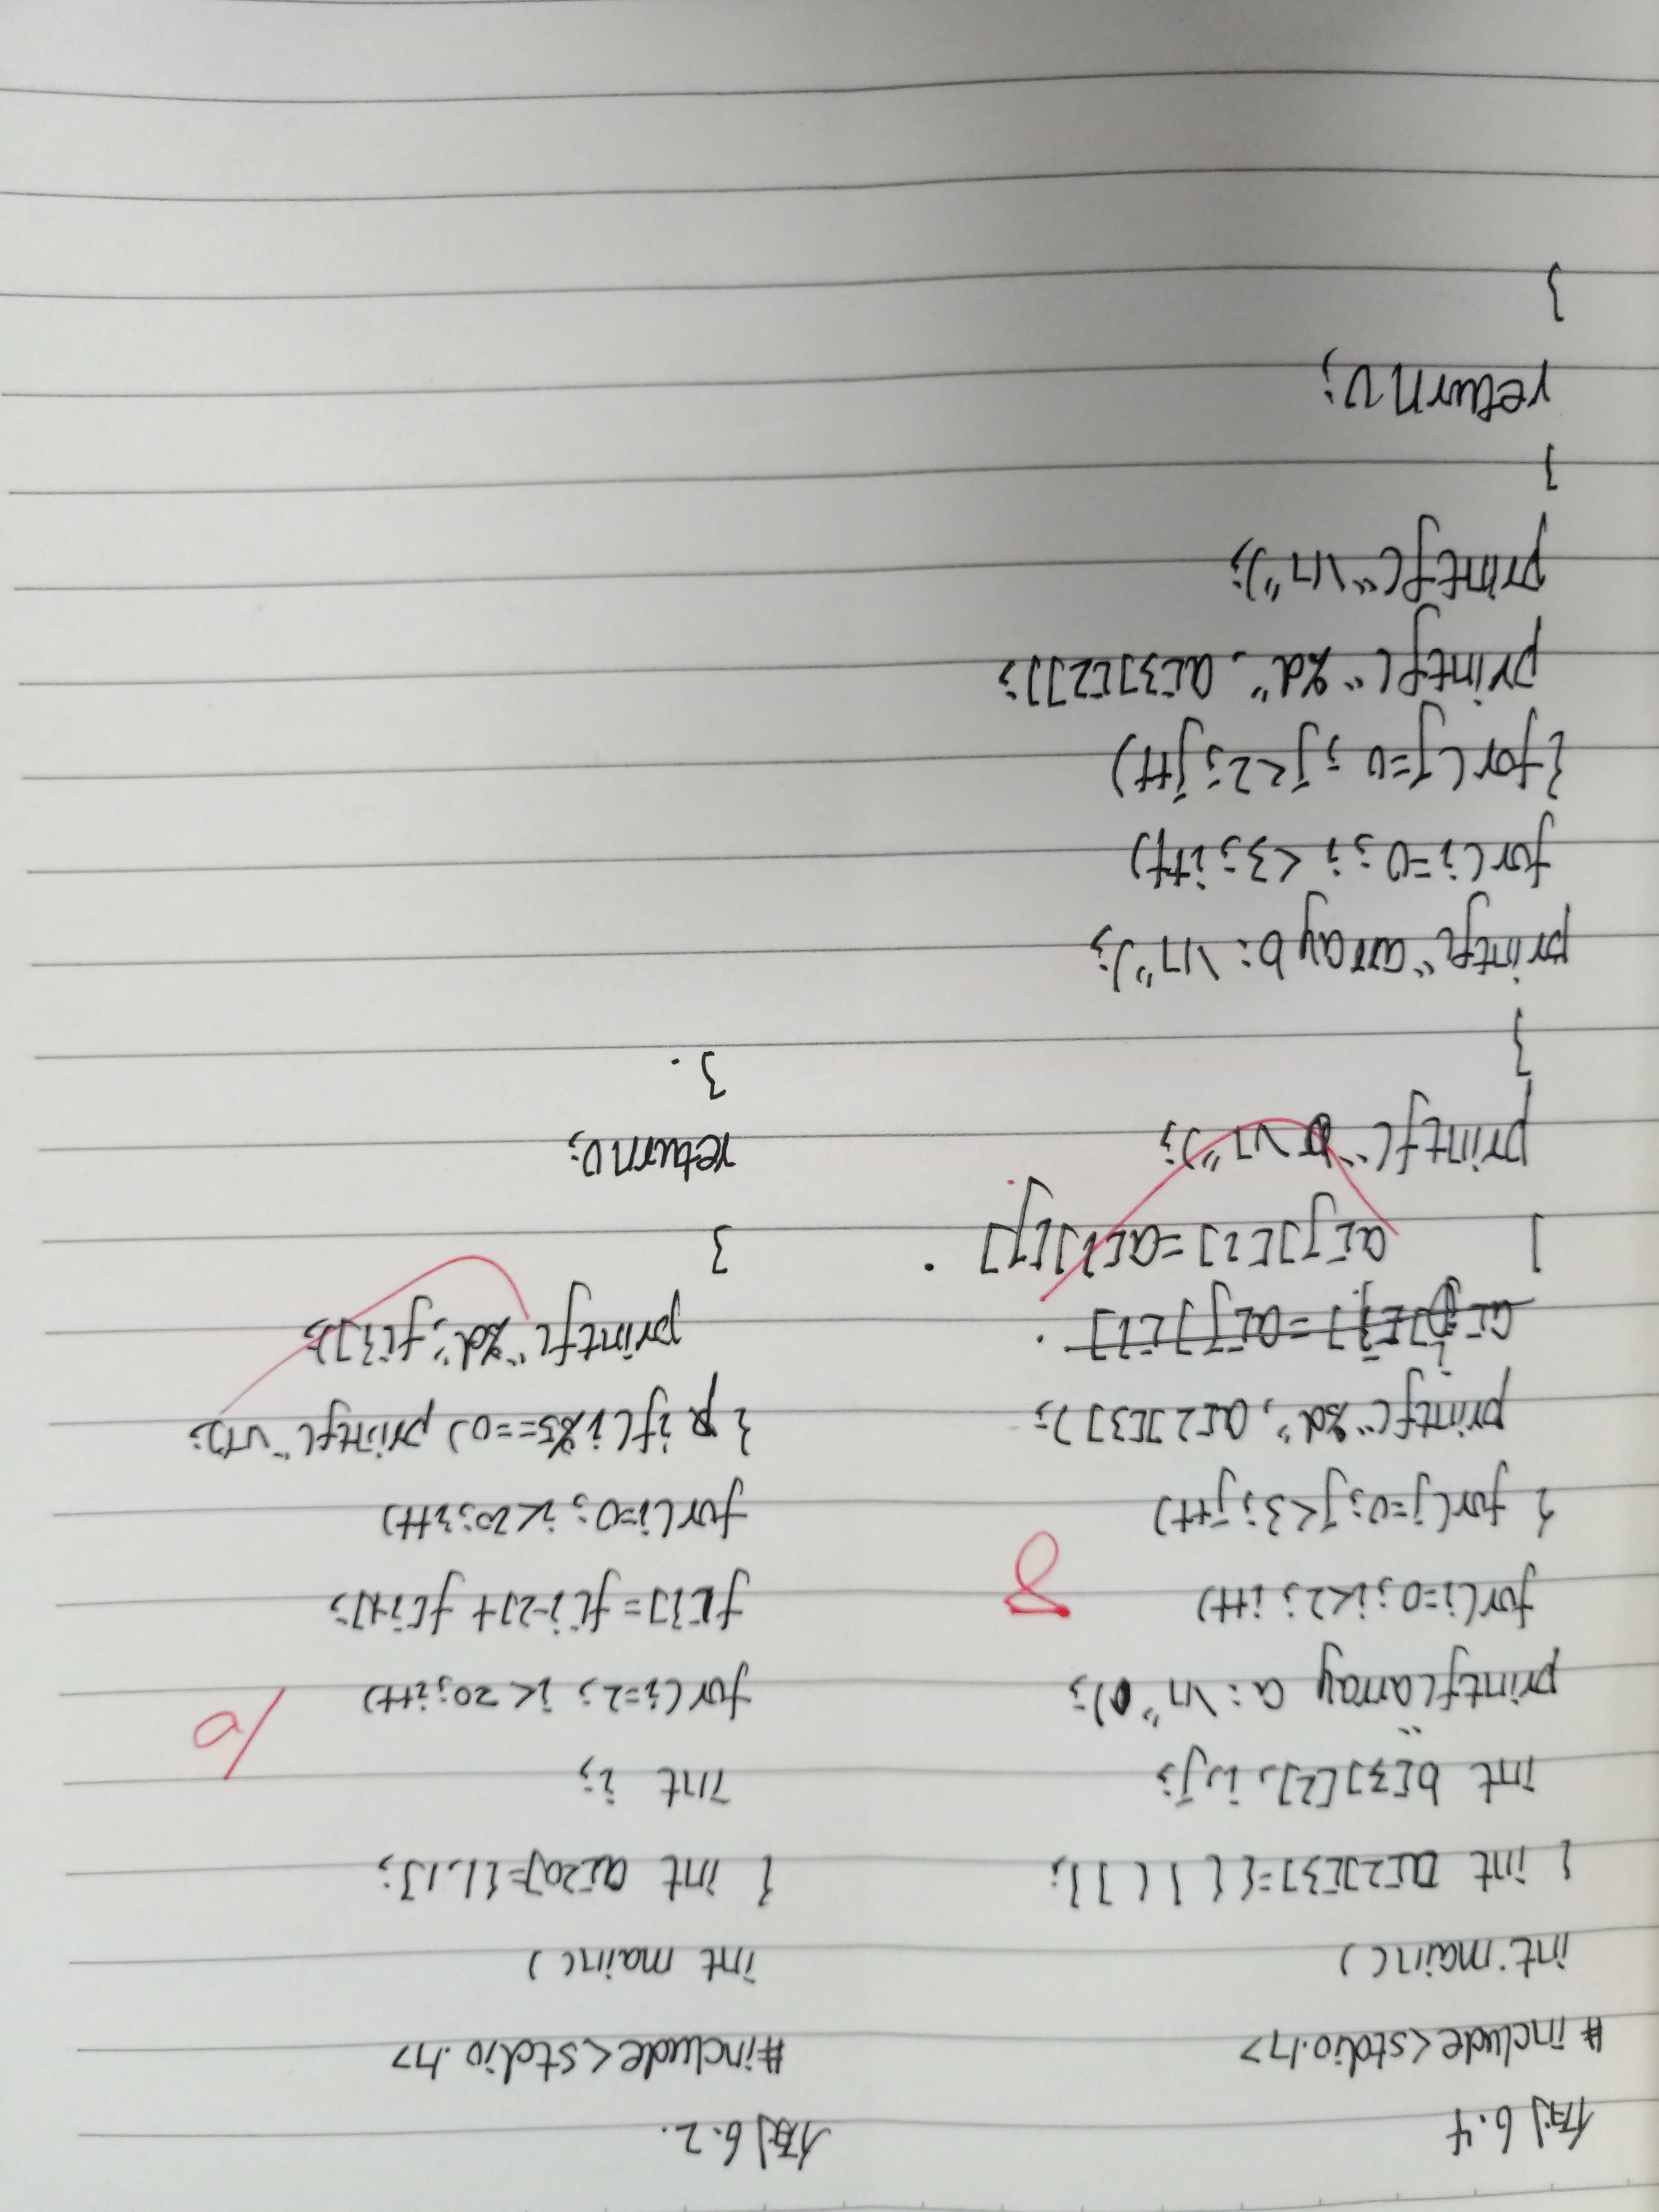 例6.4
#include<stdio.h>
int main()
{ int a[2][3]={{ } { }};
int b[3][2], i, j;
printf("array a: \n");
for(i=0;i<2; i++)
{ for(j=0;j<3;j++)
printf("%d", a[2][3]);
a[i][j]=a[j][i]
} a[j][i]=a[i][j]
printf("\n");
}
printf("array b: \n");
for(i=0;i<3;i++)
{for(j=0;j<2;j++)
printf("%d", a[3][2]);
printf("\n");
}
return 0;
}
8
例6.2.
#include<stdio.h>
int main()
{ int a[20]={1,1};
int i;
for(i=2; i<20;i++)
f[i]=f[i-2]+f[i-1];
for(i=0; i<20;i++)
{ if(i%5==0) printf("\n);
printf("%d",f[i]);
}
return 0;
}.
10